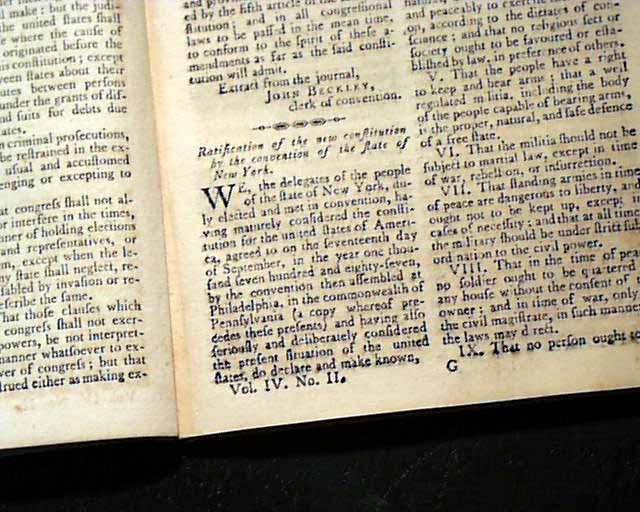 make: but the judi-
the united states shall
where the cause of
originated before the
constitution; except
ween states about their
utes between persons
under the grants of dif-
and suits for debts due
ates.
criminal prosecutions,
be restrained in the ex-
usual and accustomed
enging or excepting to
at congress shall not al-
or interfere in the times,
nner of holding elections
and representatives, or
m, except when the le-
ny state shall neglect, re-
sabled by invasion or re-
escribe the same.
That those clauses which
congress shall not exer-
powers, be not interpret-
manner whatsoever to ex-
wer of congress; but that
trued either as making ex-
ed by the fifth article of the
stitution; and in all congressional
laws to be passed in the mean time,
to conform to the spirit of these a-
mendments as far as the said consti-
tution will admit.
Extract from the journal,
JOHN BECKLEY,
clerk of convention.
Ratification of the new constitution
by the convention of the state of
New York.
WE, the delegates of the people
of the state of New York, du-
ly elected and met in convention, ha-
ving maturely considered the consti-
tution for the united states of Ameri-
ca, agreed to on the seventeenth day
of September, in the year one thou-
sand seven hundred and eighty-seven,
by the convention then assembled at
Philadelphia, in the commonwealth of
Pennsylvania (a copy whereof pre-
cedes these presents) and having also
seriously and deliberately considered
the present situation of the united
states, do declare and make known,
Vol. IV. No. II.
and peaceably to exercise
on, according to the dictates of con-
science; and that no religious sect or
society ought to be favoured or esta-
blished by law, in preference of others.
V. That the people have a right
to keep and bear arms; that a well
regulated militia, including the body
of the people capable of bearing arms,
is the proper, natural, and safe defence
of a free state.
VI. That the militia should not be
subject to martial law, except in time
of war, rebellion, or insurrection.
VII. That standing armies in time
of peace are dangerous to liberty, and
ought not to be kept up, except in
cases of necessity; and that at all times
the military should be under strict sub-
ordination to the civil power.
VIII. That in the time of peace
no soldier ought to be quartered in
any house without the consent of the
owner; and in time of war, only by
the civil magistrate, in such manner as
the laws may direct.
IX. That no person ought to
G